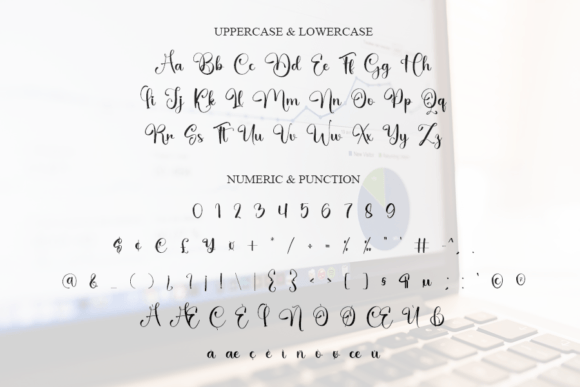 UPPERCASE & LOWERCASE
Aa Bb Cc Dd Ee Ff Gg Hh
Ii Jj Kk Ll Mm Nn Oo Pp Qq
Rr Ss Tt Uu Vv Ww Xx Yy Zz
NUMERIC & PUNCTION
0 1 2 3 4 5 6 7 8 9
$ ¢ € £ ¥ ¤ + * / ÷ = % ‰ " ' # - ^ , .
@ & _ ( ) ¿ ? ¡ ! \ | { } < > [ ] § ¶ µ ; : ` © 
Å Æ Ç É Î Ñ Ö Ø Œ Ü ß
a æ ç é i n o ø œ u